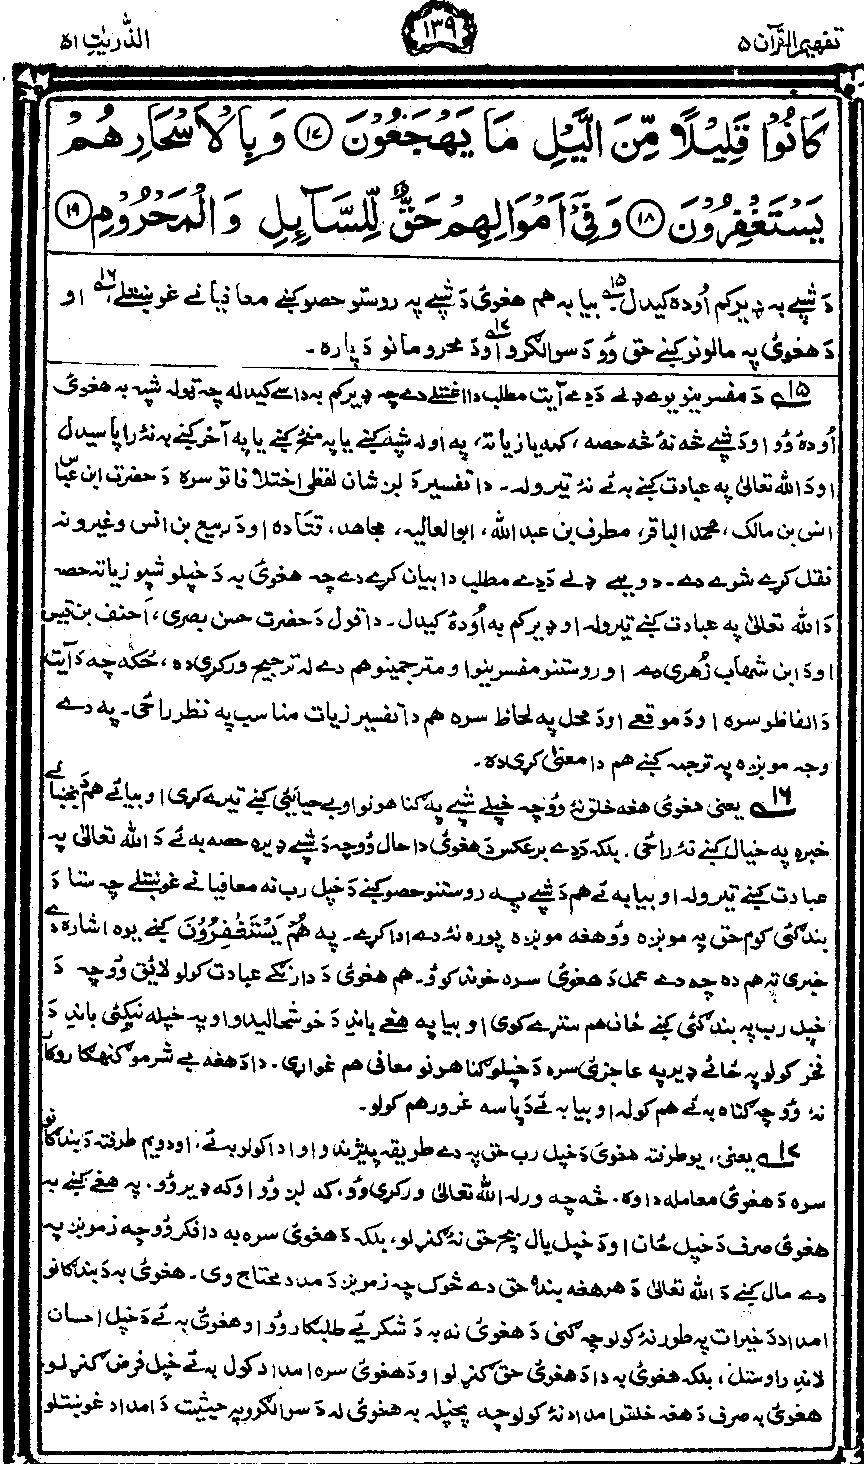 تفهيم القرآن ۵
۱۳۹
الذّٰريٰت ۵۱
كَانُوْا قَلِيْلًا مِّنَ الَّيْلِ مَا يَهْجَعُوْنَ ⑰ وَبِالْاَسْحَارِ هُمْ
يَسْتَغْفِرُوْنَ ⑱ وَفِيْٓ اَمْوَالِهِمْ حَقٌّ لِّلسَّآئِلِ وَالْمَحْرُوْمِ ⑲
دَ شپے به ډير كم اُوده كيدل ۱۵ بيا به هم هغوئ دَ شپے په روستو حصو كښے معافيانے غوښتلے، ۱۶ او
دَ هغوئ په مالونو كښے حق وُو دَ سوالګرو ۱۷ اودَ محرومانو دَ پاره ـ
۱۵ دَ مفسرينو يوے ډلے دَ دے آيت مطلب دا اغستلے دے چه ډير كم به داسے كيدله چه ټوله شپه به هغوئ
اُودهٔ وُو اودَ شپے څه نهٔ څه حصه، كمه يا زياته، په اوله شپه كښے يا په منځ كښے يا په آخر كښے به نهٔ راپاسيدل
اودَ الله تعالىٰ په عبادت كښے به ئے نهٔ تيروله ـ دا تفسير دَ لږ شان لفظى اختلافاتو سره دَ حضرت ابن عباس
انس بن مالك، محمد الباقر، مطرف بن عبدالله، ابوالعاليه، مجاهد، قتاده اودَ ربيع بن انس وغيرو نه
نقل كړے شوے دے ـ دويمے ډلے دَ دے مطلب دا بيان كړے دے چه هغوئ به دَ خپلو شپو زياته حصه
دَ الله تعالىٰ په عبادت كښے تيروله او ډير كم به اُودهٔ كيدل ـ دا قول دَ حضرت حسن بصرى، احنف بن قيس
اودَ ابن شهاب زُهرى دے اور وستنو مفسرينو او مترجمينو هم دے له ترجيح وركړى ده، ځكه چه دَ آيت
دَ الفاظو سره اودَ موقعے اودَ محل په لحاظ سره هم دا تفسير زيات مناسب په نظر راځى ـ په دے
وجه مونږه په ترجمه كښے هم دا معنىٰ كړى ده ـ
۱۶ يعنى هغوئ هغه خلق نهٔ وُو چه خپلے شپے په ګناهونو او بے حيائئ كښے تيرے كړى او بيا ئے هم دَ بخښنے
خبره په خيال كښے نهٔ راځى. بلكه دَ دے برعكس دَ هغوئ دا حال وُو چه دَ شپے ډيره حصه به ئے دَ الله تعالىٰ په
عبادت كښے تيروله او بيا به ئے هم دَ شپے په روستنو حصو كښے دَ خپل رب نه معافيانے غوښتلے چه ستا دَ
بندګئ كوم حق په مونږه وُو هغه مونږه پوره نهٔ دے ادا كړے ـ په هُمْ يَسْتَغْفِرُوْنَ كښے يوه اشاره دے
خبرى ته هم ده چه دے عمل دَ هغوئ سره خوند كوو ـ هم هغوئ دَ دا رنګے عبادت كولو لائق وُو چه دَ
خپل رب په بندګئ كښے ځان هم ستړے كوى او بيا په هغے باندِ دَ خوشحاليدو او په خپله نيكئ باندِ دَ
فخر كولو په ځائے ډير په عاجزئ سره دَ خپلو ګناهونو معافى هم غواړى. دا دَ هغه بے شرمو ګنهګارو كار
نهٔ وُو چه ګناه به ئے هم كوله او بيا به ئے دَ پاسه غرور هم كولو ـ
۱۷ يعنى، يو طرفته هغوئ دَ خپل رب حق په دے طريقه پيژندو او ادا كولو به ئے، او دويم طرفته دَ بندګانو
سره دَ هغوئ معامله دا وه. څه چه ورله الله تعالىٰ وركړى وُو، كه لږ وُو او كه ډير وُو. په هغے كښے به
هغوئ صرف دَ خپل ځان اودَ خپل بال بچ حق نهٔ ګنړلو، بلكه دَ هغوئ سره به دا فكر وُو چه زمونږ په
دے مال كښے دَ الله تعالىٰ دَ هر هغه بنده حق دے څوك چه زمونږ دَ مدد محتاج وى ـ هغوئ به دَ بندګانو
امداد دَ خيرات په طور نهٔ كولو چه ګنى دَ هغوئ نه به دَ شكريے طلبګار وُو او هغوئ به ئے دَ خپل احسان
لاندِ راوستل، بلكه هغوئ به دا دَ هغوئ حق ګنړلو اودَ هغوئ سره امداد كول به ئے خپل فرض ګنړلو.
هغوئ به صرف دَ هغه خلقو امداد نهٔ كولو چه پخپله به هغوئ له دَ سوالګرو په حيثيت دَ امداد غوښتلو